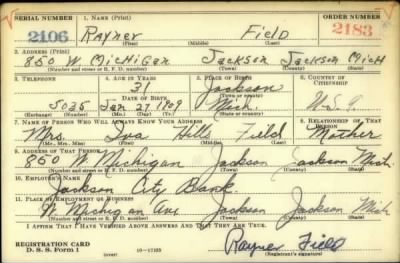 SERIAL NUMBER 1. NAME (Print) ORDER NUMBER
2106 Rayner Field 2183
(First) (Middle) (Last)
2. ADDRESS (Print)
850 W. Michigan Jackson Jackson Mich
(Number and street or R. F. D. number) (Town) (County) (State)
3. TELEPHONE 4. AGE IN YEARS 5. PLACE OF BIRTH 6. COUNTRY OF CITIZENSHIP
31 Jackson
DATE OF BIRTH (Town or county)
5025 Jan 27 1909 Mich. U.S.
(Exchange) (Number) (Mo.) (Day) (Yr.) (State or country)
7. NAME OF PERSON WHO WILL ALWAYS KNOW YOUR ADDRESS 8. RELATIONSHIP OF THAT PERSON
Mrs. Iva Hills Field Mother
(Mr., Mrs., Miss) (First) (Middle) (Last)
9. ADDRESS OF THAT PERSON
850 W. Michigan Jackson Jackson Mich.
(Number and street or R. F. D. number) (Town) (County) (State)
10. EMPLOYER'S NAME
Jackson City Bank.
11. PLACE OF EMPLOYMENT OR BUSINESS
W Michigan Ave Jackson Jackson Mich
(Number and street or R. F. D. number) (Town) (County) (State)
I AFFIRM THAT I HAVE VERIFIED ABOVE ANSWERS AND THAT THEY ARE TRUE.
REGISTRATION CARD Rayner Field
D. S. S. Form 1 (over) 16-17105 (Registrant's signature)